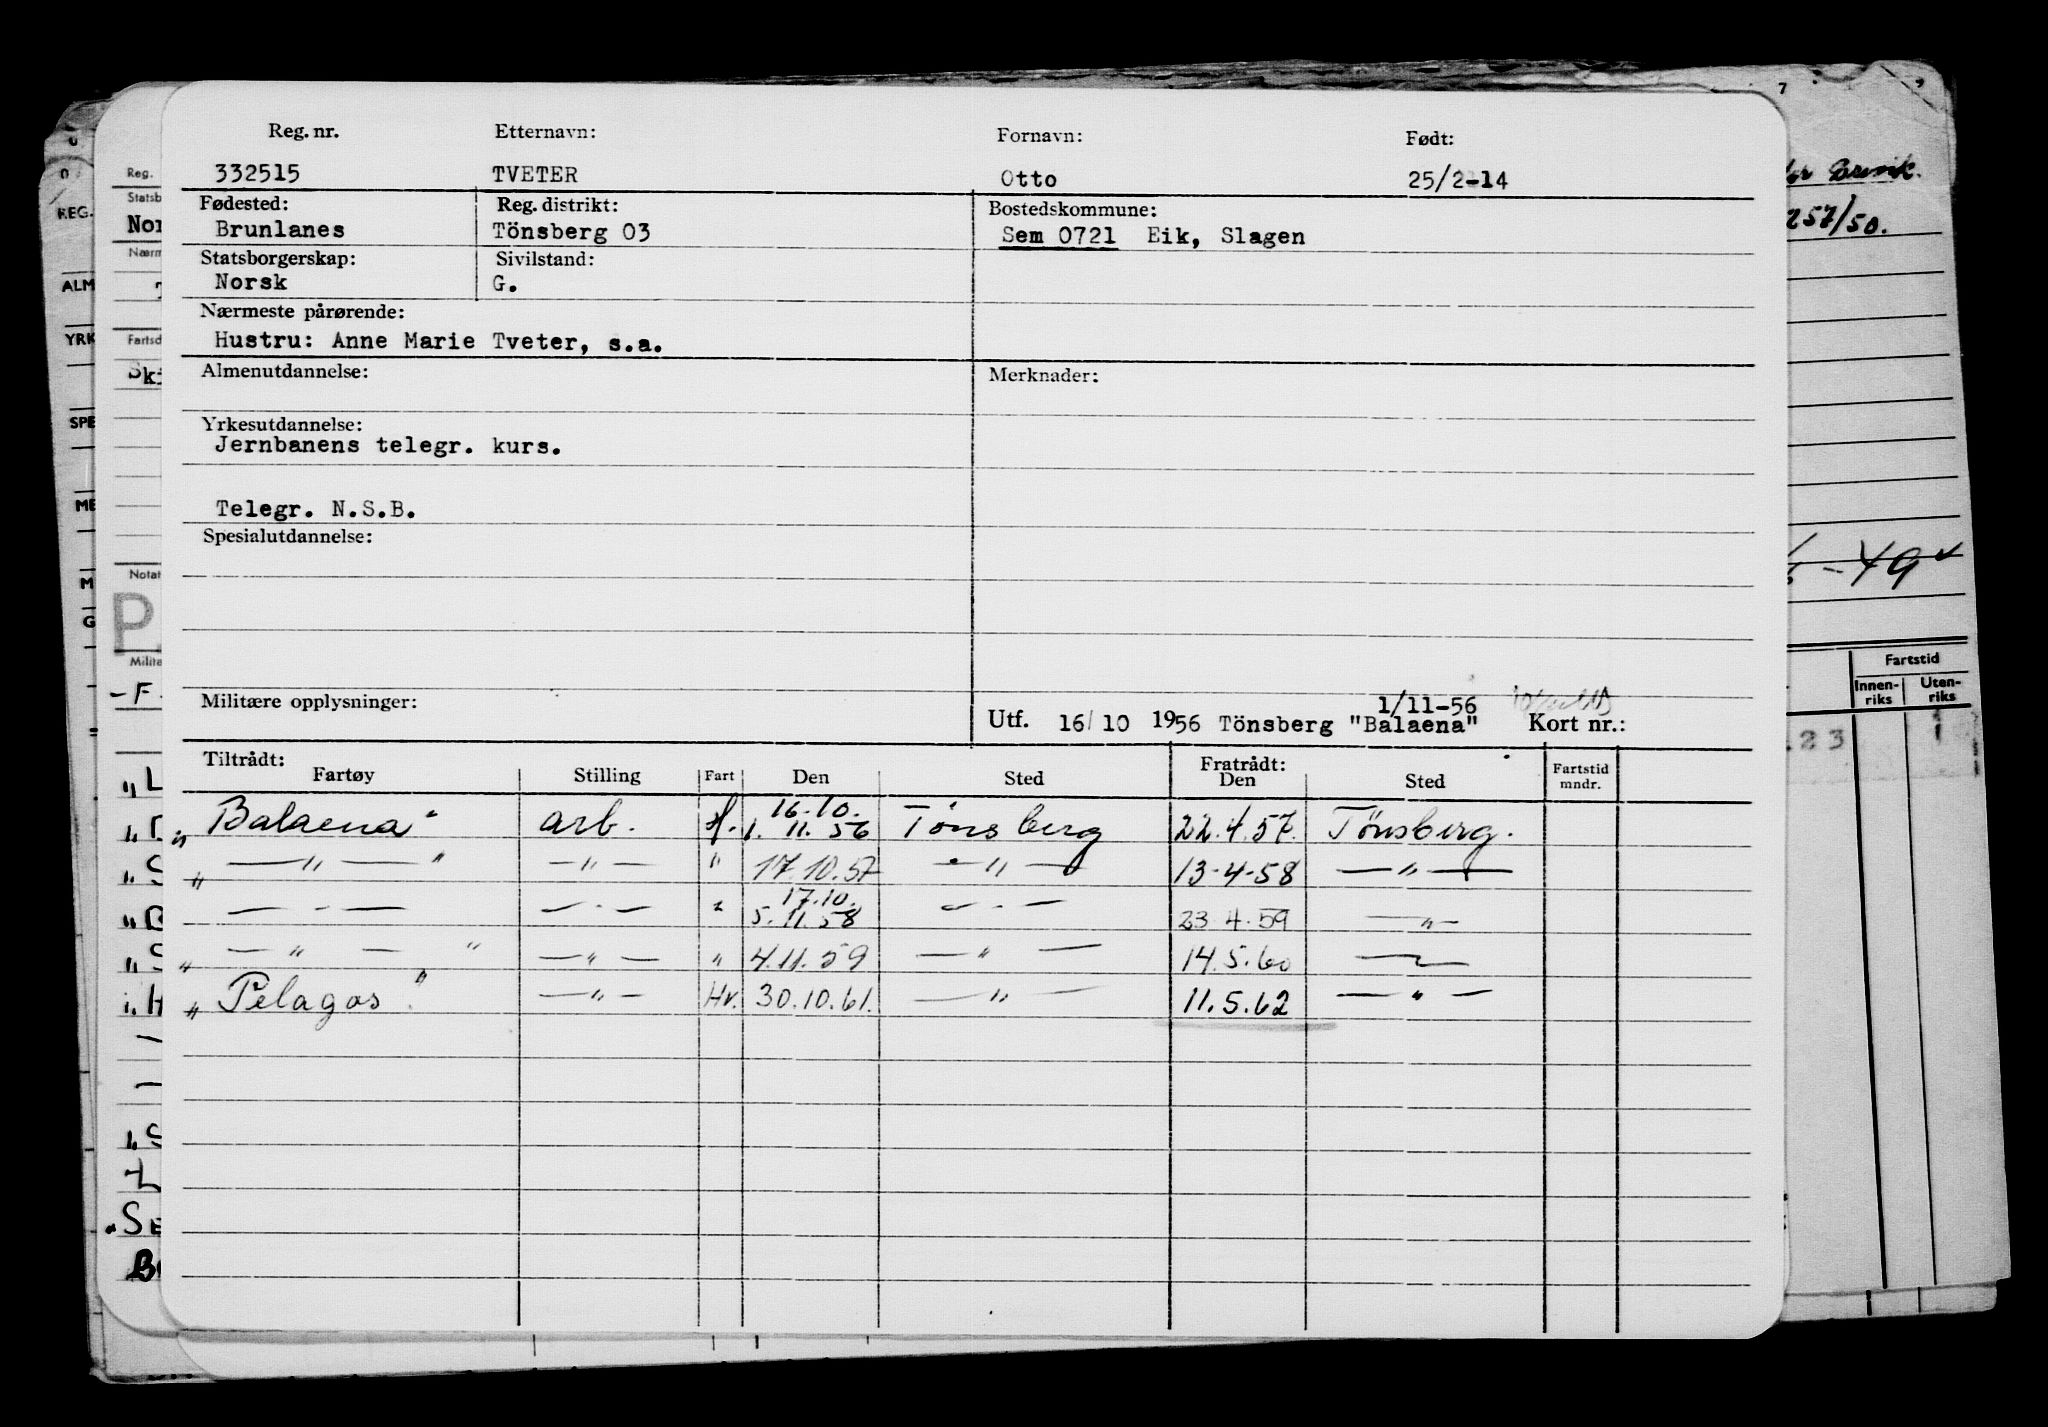 Reg. nr. Etternavn: Fornavn: Født:
332515 TVETER Otto 25/2-14
Fødested: Reg. distrikt: Bostedskommune:
Brunlanes Tönsberg 03 Sem 0721 Eik, Slagen
Statsborgerskap: Sivilstand:
Norsk G.
Nærmeste pårørende:
Hustru: Anne Marie Tveter, s.a.
Almenutdannelse: Merknader:
Yrkesutdannelse:
Jernbanens telegr. kurs.
Telegr. N.S.B.
Spesialutdannelse:
Militære opplysninger:
1/11-56
Utf. 16/10 1956 Tönsberg "Balaena" Kort nr.:
Tiltrådt: Fratrådt:
Fartøy Stilling Fart Den Sted Den Sted Fartstid mndr.
16.10.
"Balaena" arb. H. 1. 11. 56 Tønsberg 22.4.57. Tønsberg.
" — " — " — " — " 17.10.57 — " — 13-4-58 — " —
17.10.
— " — — " — " 5.11.58 — " — 23.4.59 — " —
" — " — " — " — " 4.11.59 — " — 14.5.60 — " —
"Pelagos". — " — Hv. 30.10.61. — " — 11.5.62 — " —
Reg.
REG.
ALM
YRK
SPE
ME
M
G
Notat
P
-F
257/50.
- 49
Fartstid
Innen-riks Uten-riks
23 1